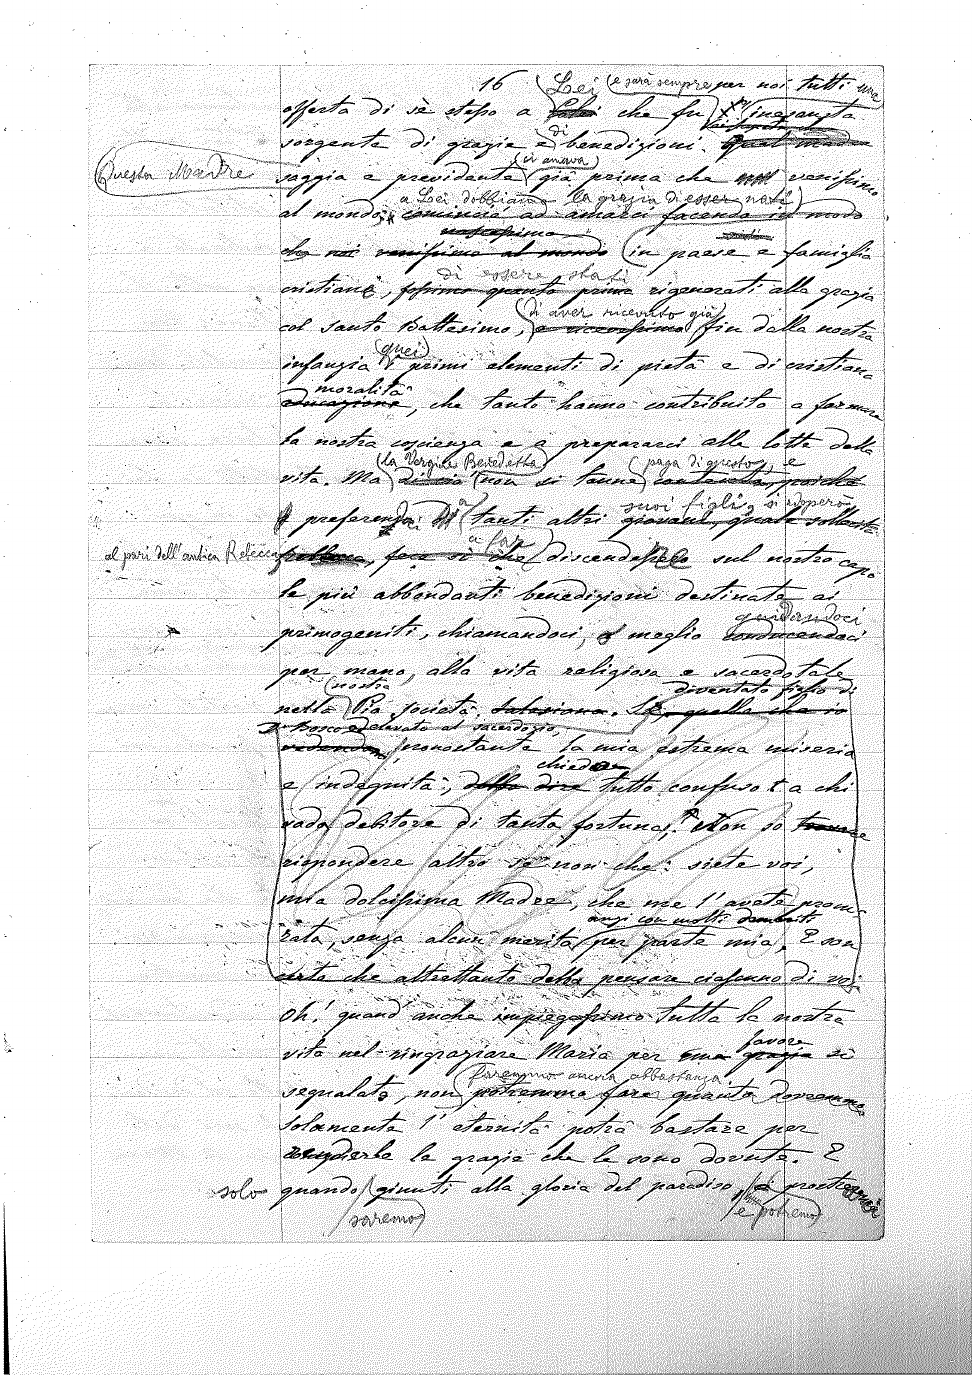 16 Lei (e sarà sempre per noi tutti una
offerta di sè stesso a che fu inesausta
sorgente di grazie e di benedizioni. Qual madre
Questa Madre saggia e previdente (ci amava) già prima che venissimo
a Lei dobbiamo la grazia di esser nati)
al mondo, cominciò ad amarci facendo in modo
nascessimo
che noi venissimo al mondo (in paese e famiglia
di essere stati
cristiani, fossimo quanto prima rigenerati alla grazia
(di aver ricevuto già)
col santo Battesimo, e ricevessimo fin dalla nostra
(quei)
infanzia i primi elementi di pietà e di cristiana
moralità
educazione, che tanto hanno contribuito a formare
la nostra coscienza e a prepararci alle lotte della
(la Vergine Benedetta) (paga di questo, e
vita. Ma di ciò non si tenne contenta, poichè
suoi figli, si adoperò
preferendoci a tanti altri giovani, quale sollecita
a far
al pari dell'antica Rebecca, fece sì che discendessero sul nostro capo
le più abbondanti benedizioni destinate ai
guidandoci
primogeniti, chiamandoci, o meglio conducendoci
per mano, alla vita religiosa e sacerdotale
(nostra diventato figlio di
nella Pia Società Salesiana. Se quella che io
D. Bosco ed elevato al sacerdozio,
vedendo, nonostante la mia estrema miseria
chiedo
e indegnità, dire tutto confuso a chi
vado debitore di tanta fortuna, Non so
rispondere altro se non che: siete voi,
mia dolcissima Madre, che me l'avete procu-
anzi con molti demeriti
rata, senza alcun merito per parte mia. E son
certo che altrettanto debba pensare ciascuno di voi.
Oh! quand'anche impiegassimo tutta la nostra
favore
vita nel ringraziare Maria per una grazia sì
faremmo ancora abbastanza.
segnalato, non potremmo fare quanto dovremmo
solamente l'eternità potrà bastare per
renderle le grazie che le sono dovute. E
solo quando giunti alla gloria del paradiso,
saremo e potremo